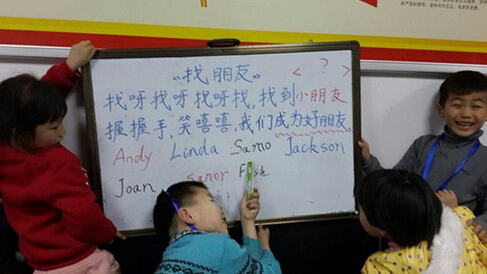 《找朋友》 < ? >
找呀找呀找呀找,找到小朋友
握握手,笑嘻嘻,我们成为好朋友
Andy Linda Samo Jackson
Joan sanor Fish